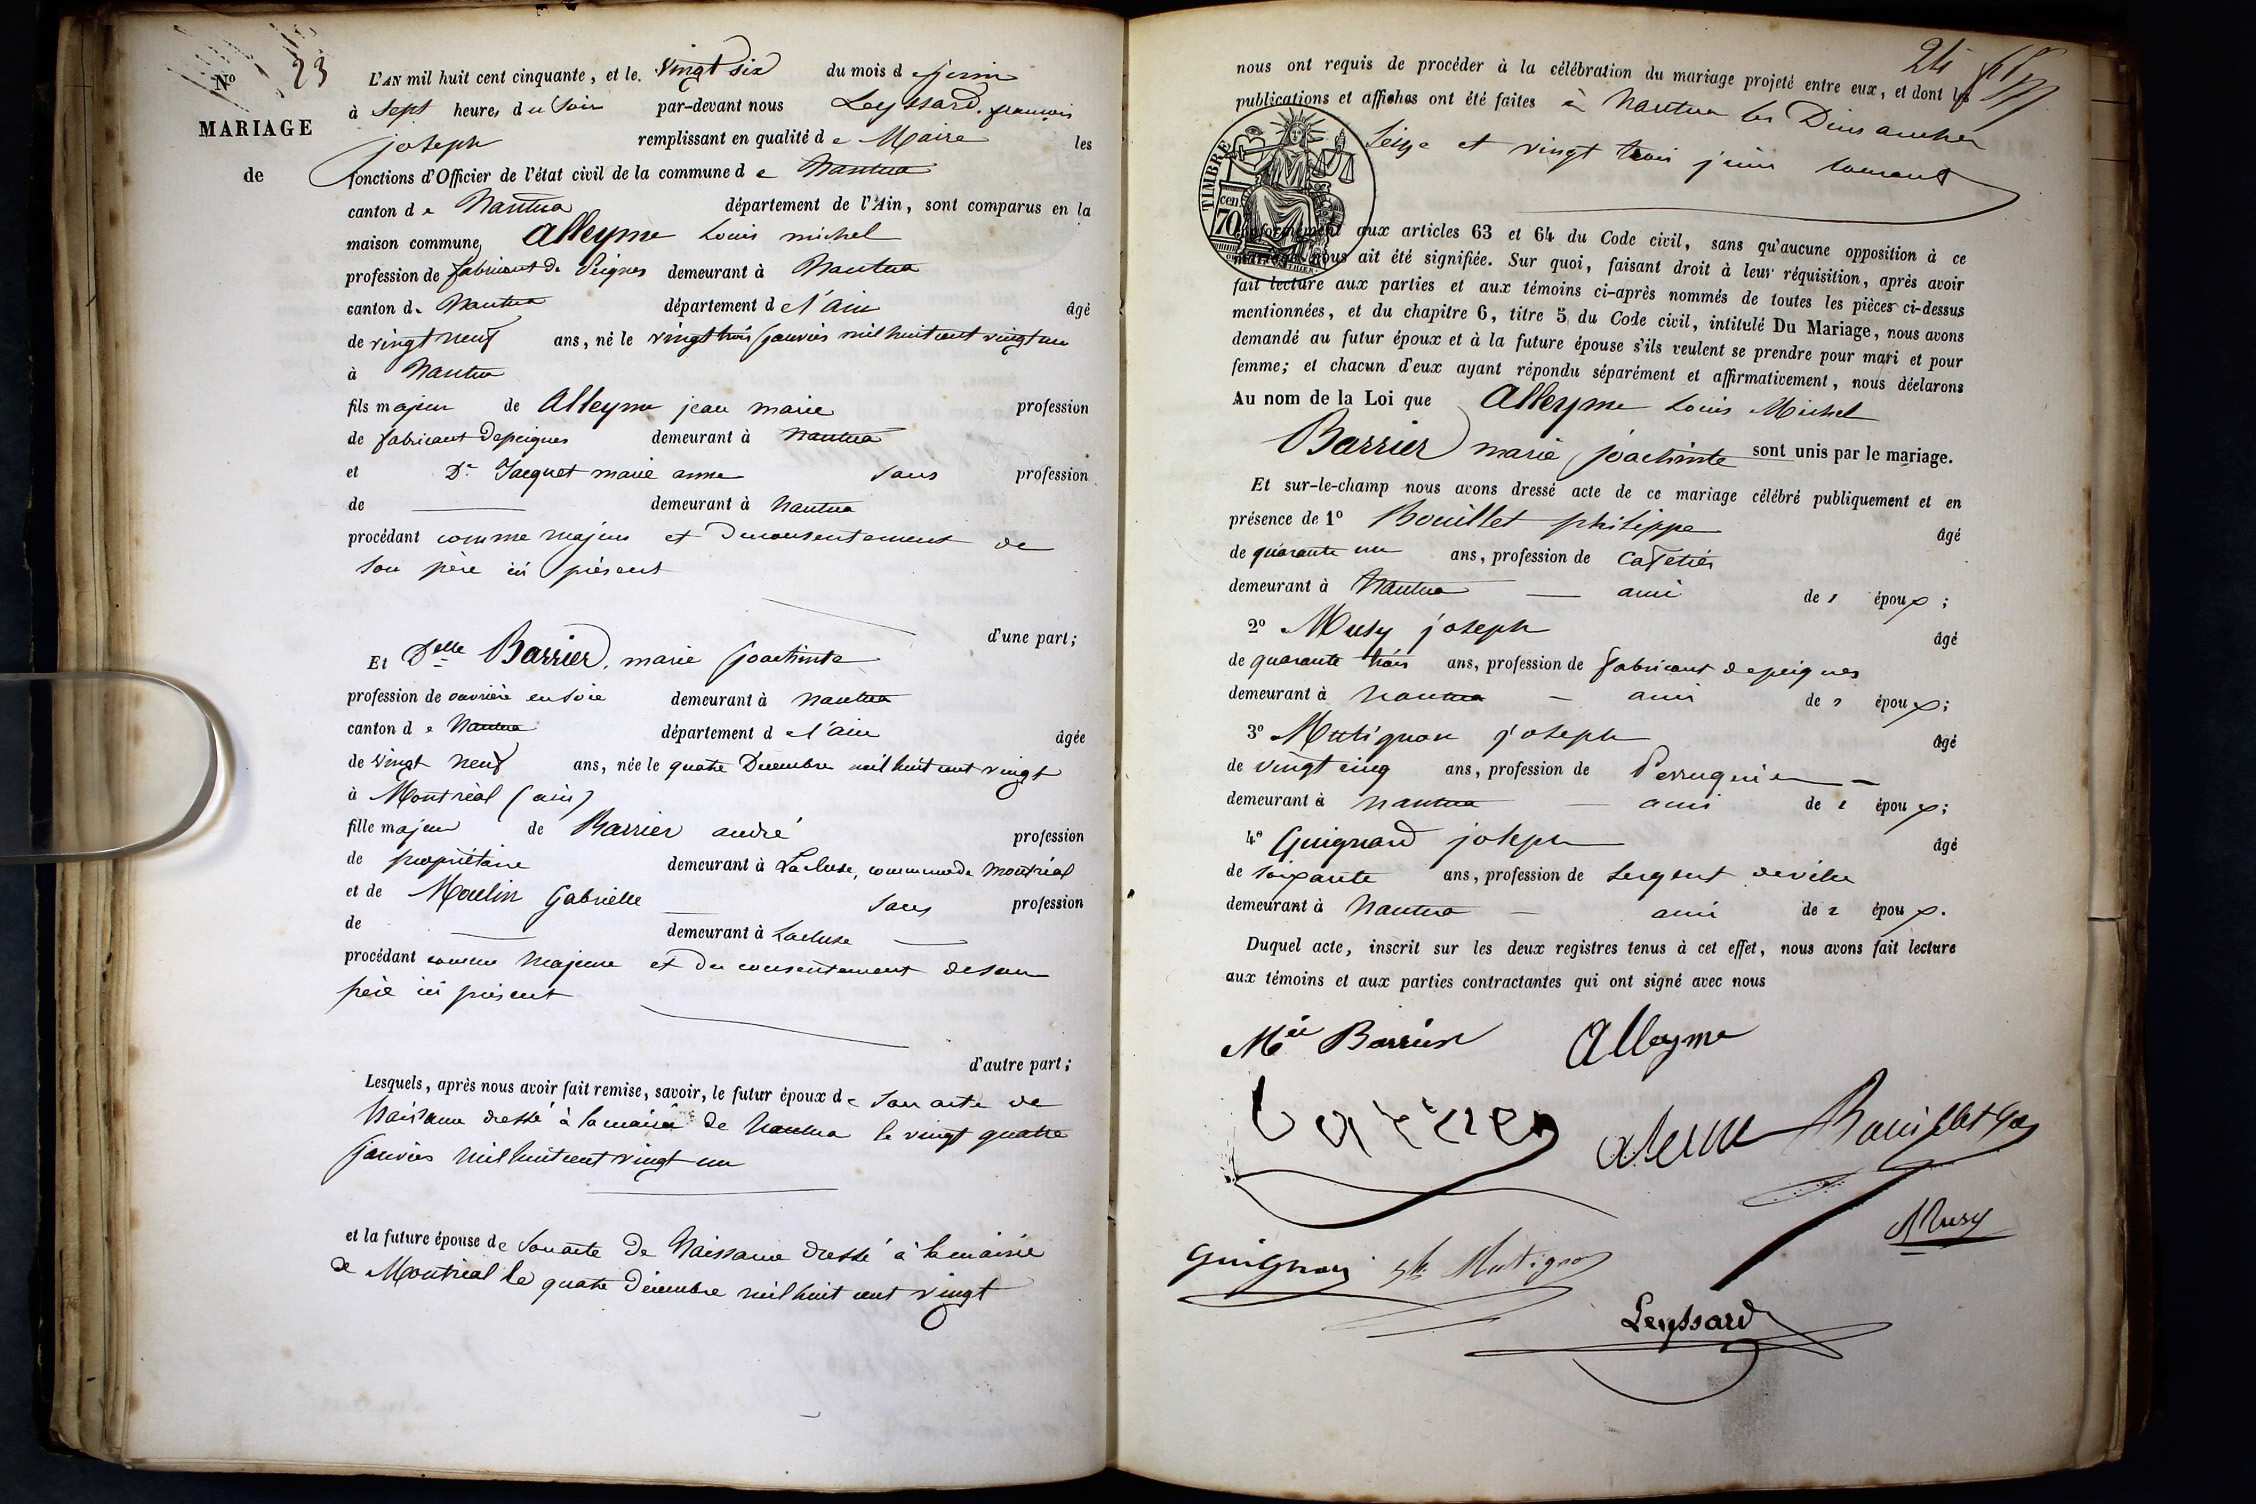 No 23
MARIAGE
de
L'AN mil huit cent cinquante, et le vingt six du mois de juin
à sept heures du soir par-devant nous Leyssard françois
joseph remplissant en qualité de Maire les
fonctions d'Officier de l'état civil de la commune de Nantua
canton de Nantua département de l'Ain, sont comparus en la
maison commune, Alleyme Louis michel
profession de fabricant de Peignes demeurant à Nantua
canton de Nantua département de l'ain âgé
de vingt neuf ans, né le vingt trois janvier mil huit cent vingt un
à Nantua
fils majeur de Alleyme jean marie profession
de fabricant de peignes demeurant à Nantua
et De Jacquet marie anne sans profession
de demeurant à Nantua
procédant comme majeur et du consentement de
son père ici présent
d'une part;
Et Delle Barrier, marie joachinte
profession de ouvrière en soie demeurant à Nantua
canton de Nantua département de l'ain âgée
de vingt neuf ans, née le quatre Decembre mil huit cent vingt
à Montréal (ain)
fille majeur de Barrier andré profession
de propriétaire demeurant à Lacluse, commune de Montréal
et de Moulin Gabrielle sans profession
de demeurant à Lacluse
procédant comme majeure et du consentement de son
père ici présent
d'autre part;
Lesquels, après nous avoir fait remise, savoir, le futur époux de son acte de
naissance dressé à la mairie de Nantua le vingt quatre
janvier mil huit cent vingt un
et la future épouse de son acte de Naissance dressé à la mairie
de Montréal le quatre décembre mil huit cent vingt
24
nous ont requis de procéder à la célébration du mariage projeté entre eux, et dont les
publications et affiches ont été faites à Nantua les Dimanches
Seize et vingt trois juin courant
TIMBRE
cen 70
conformément aux articles 63 et 64 du Code civil, sans qu'aucune opposition à ce
mariage nous ait été signifiée. Sur quoi, faisant droit à leur réquisition, après avoir
fait lecture aux parties et aux témoins ci-après nommés de toutes les pièces ci-dessus
mentionnées, et du chapitre 6, titre 5 du Code civil, intitulé Du Mariage, nous avons
demandé au futur époux et à la future épouse s'ils veulent se prendre pour mari et pour
femme; et chacun d'eux ayant répondu séparément et affirmativement, nous déclarons
Au nom de la Loi que Alleyme Louis Michel
Barrier marie joachinte sont unis par le mariage.
Et sur-le-champ nous avons dressé acte de ce mariage célébré publiquement et en
présence de 1o Bouillet philippe âgé
de quarante un ans, profession de Cafetier
demeurant à Nantua ami des époux;
2o Musy joseph âgé
de quarante trois ans, profession de fabricant de peignes
demeurant à Nantua ami des époux;
3o Mutignon joseph âgé
de vingt cinq ans, profession de Perruquier
demeurant à Nantua ami des époux;
4o Guignard joseph âgé
de soixante ans, profession de Sergent de ville
demeurant à Nantua ami des époux.
Duquel acte, inscrit sur les deux registres tenus à cet effet, nous avons fait lecture
aux témoins et aux parties contractantes qui ont signé avec nous
Mie Barrier Alleyme
barrier
Musy
Leyssard